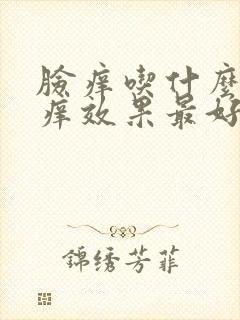 脸痒喫什麽
痒效果最好
錦绣芳菲